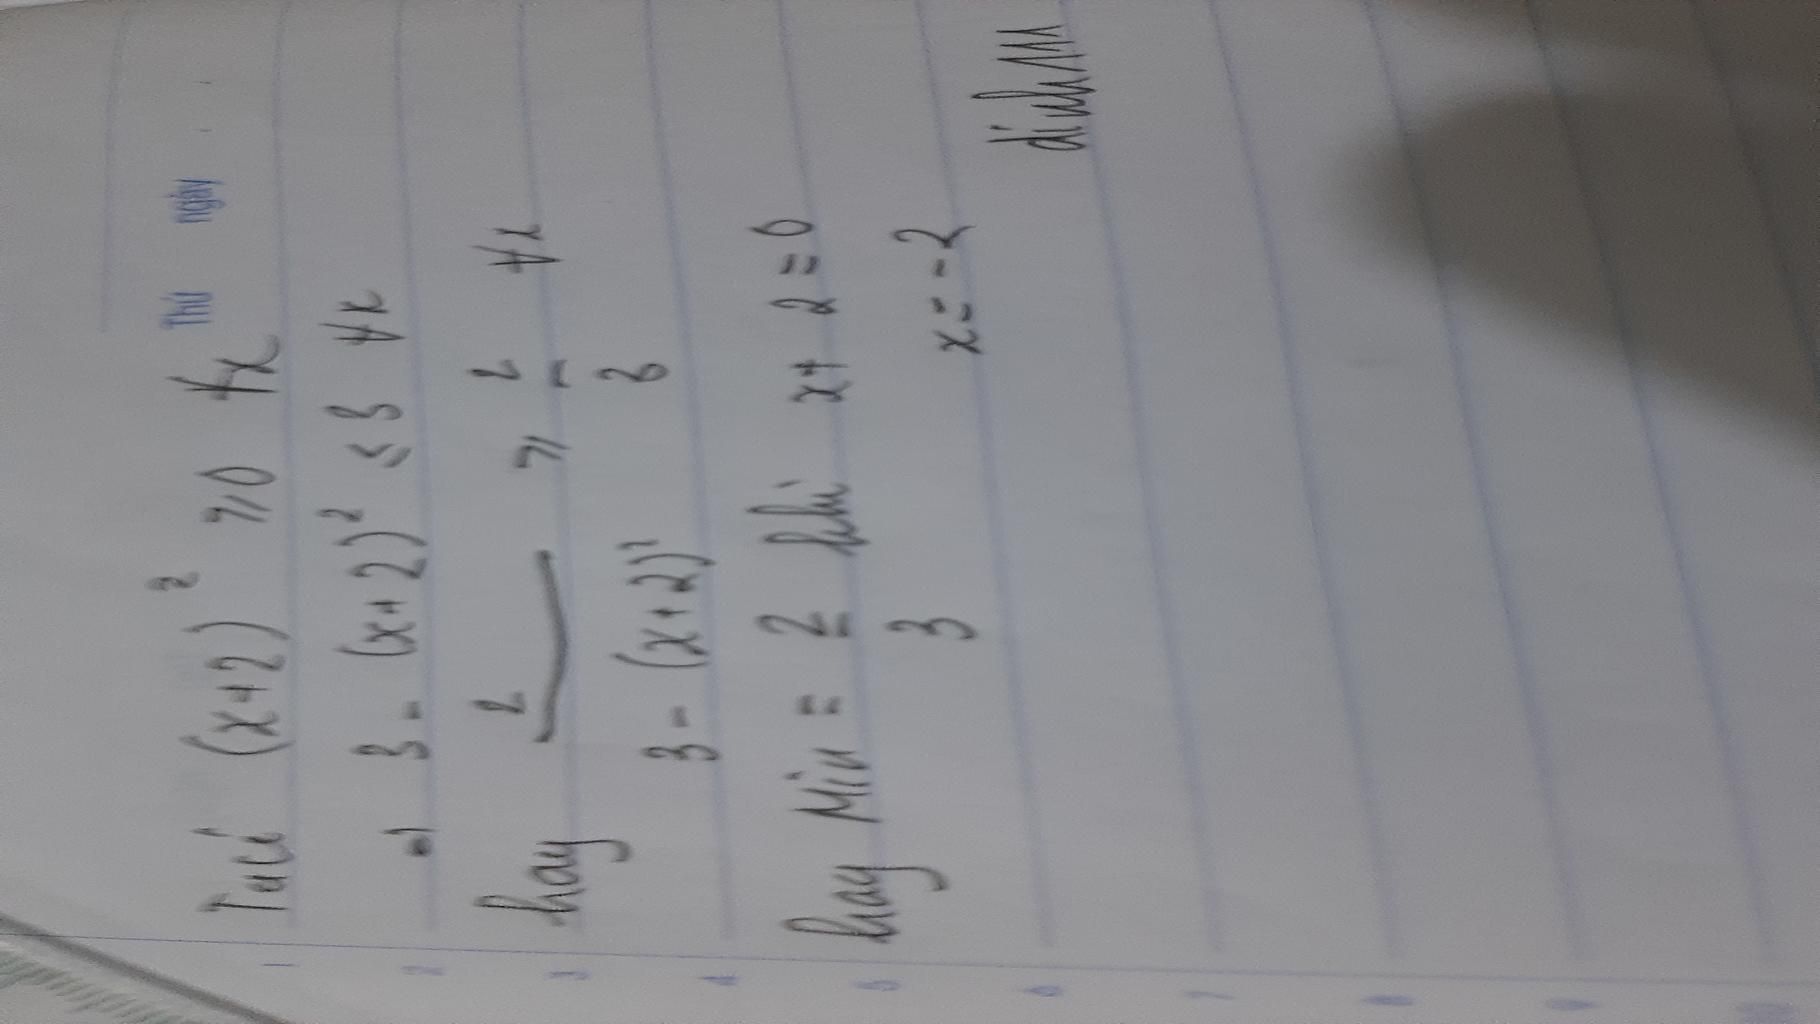 Thứ ngày
Ta có (x+2)² ⩾ 0 ∀x
=) 3 - (x+2)² ≤ 3 ∀x
hay 2 / 3 - (x+2)² ⩾ 2 / 3 ∀x
hay Min = 2 / 3 khi x + 2 = 0
x = -2
1
2
3
4
5
6
7
8
9
10